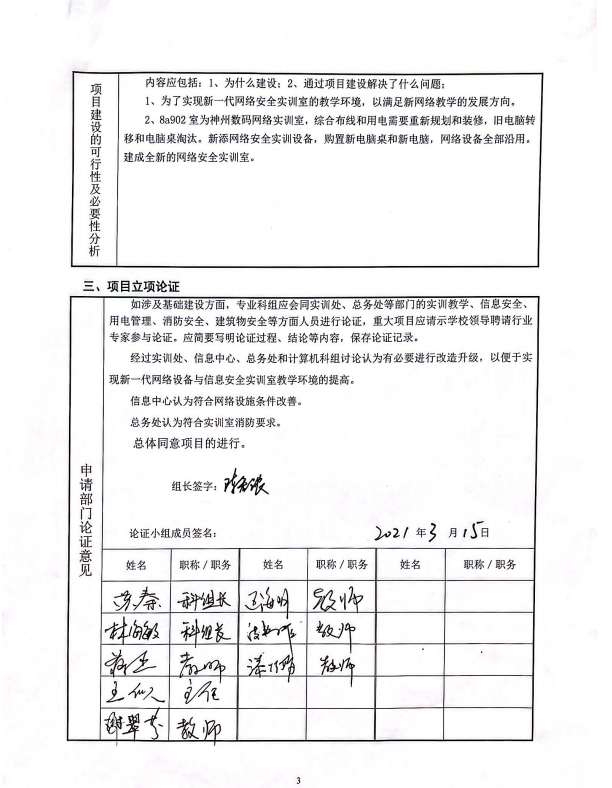 项目建设的可行性及必要性分析
内容应包括：1、为什么建设；2、通过项目建设解决了什么问题；
1、为了实现新一代网络安全实训室的教学环境，以满足新网络教学的发展方向。
2、8a902 室为神州数码网络实训室，综合布线和用电需要重新规划和装修，旧电脑转
移和电脑桌淘汰。新添网络安全实训设备，购置新电脑桌和新电脑，网络设备全部沿用。
建成全新的网络安全实训室。
三、项目立项论证
申请部门论证意见
如涉及基础建设方面，专业科组应会同实训处、总务处等部门的实训教学、信息安全、
用电管理、消防安全、建筑物安全等方面人员进行论证，重大项目应请示学校领导聘请行业
专家参与论证。应简要写明论证过程、结论等内容，保存论证记录。
经过实训处、信息中心、总务处和计算机科组讨论认为有必要进行改造升级，以便于实
现新一代网络设备与信息安全实训室教学环境的提高。
信息中心认为符合网络设施条件改善。
总务处认为符合实训室消防要求。
总体同意项目的进行。
组长签字：
论证小组成员签名： 2021 年 3 月 15 日
姓名 职称／职务 姓名 职称／职务 姓名 职称／职务
科组长 教师
林海敏 科组长 教师
教师 教师
主任
谢翠芬 教师
3